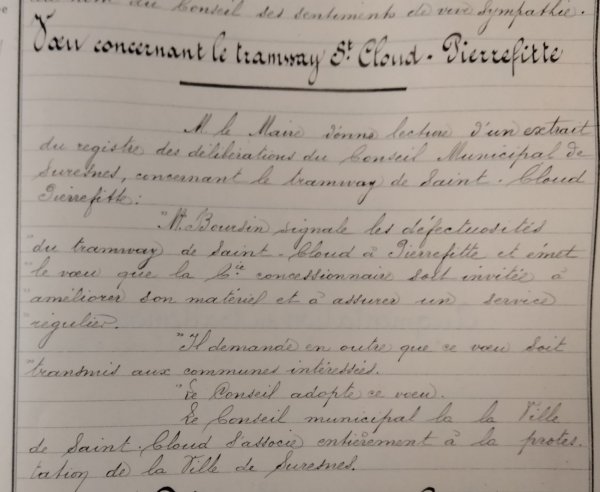 au nom du Conseil ses sentiments de vive sympathie.
Vœu concernant le tramway St Cloud - Pierrefitte
M. le Maire donne lecture d'un extrait
du registre des délibérations du Conseil Municipal de
Suresnes, concernant le tramway de Saint-Cloud
Pierrefitte:
"M. Boursin signale les défectuosités
"du tramway de Saint-Cloud à Pierrefitte et émet
"le vœu que la Cie concessionnaire soit invitée à
"améliorer son matériel et à assurer un service
"régulier.
"Il demande en outre que ce vœu soit
"transmis aux communes intéressées.
"Le Conseil adopte ce vœu.
Le Conseil municipal la la Ville
de Saint-Cloud s'associe entièrement à la protes-
tation de la Ville de Suresnes.